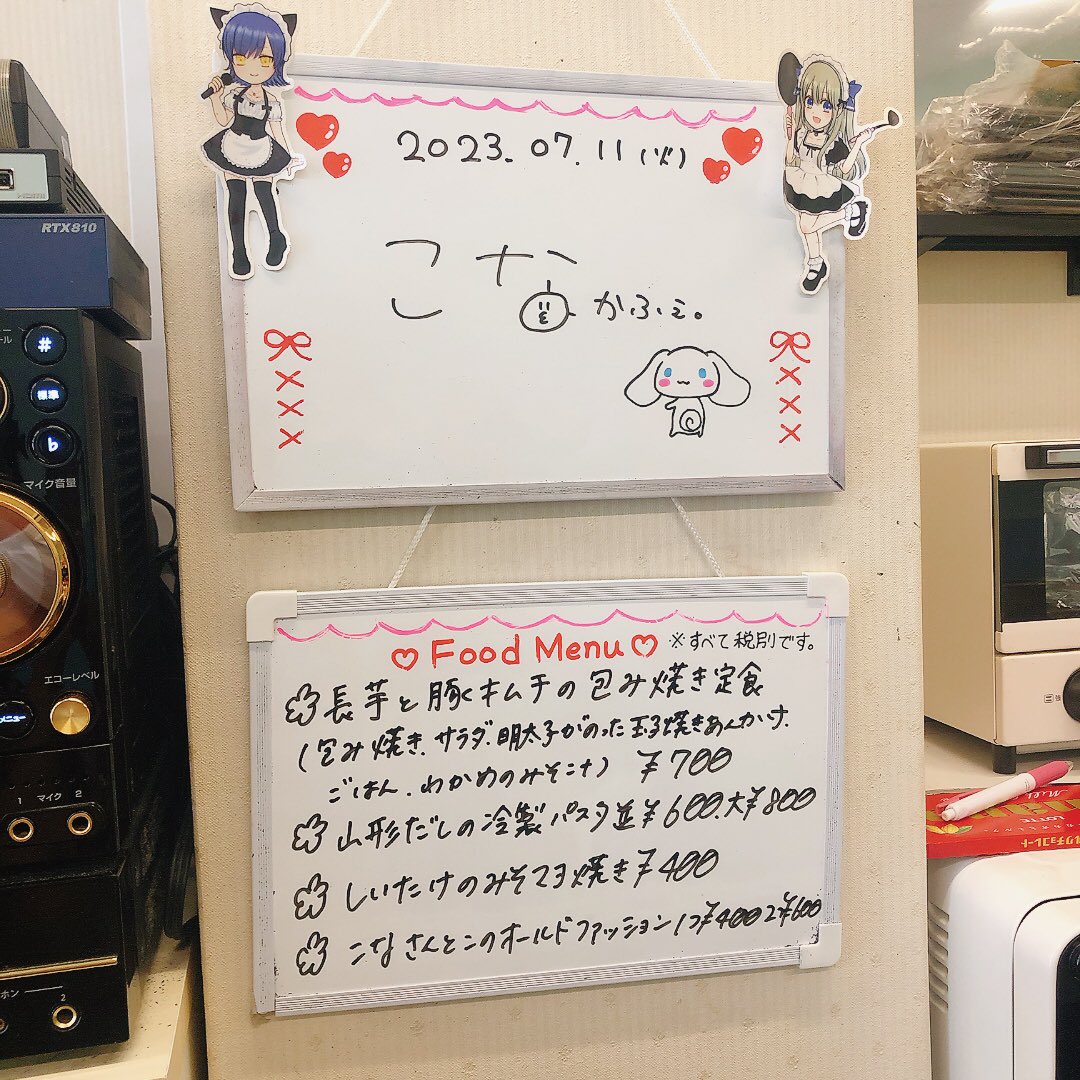 2023.07.11(火)
こなかふぇ。
♡Food Menu♡ ※すべて税別です。
長芋と豚キムチの包み焼き定食
(包み焼き、サラダ、明太子がのった玉子焼きあんかけ、
ごはん、わかめのみそ汁) ¥700
山形だしの冷製パスタ並¥600、大¥800
しいたけのみそマヨ焼き¥400
こなさんとこのオールドファッション1つ¥400 2¥600
RTX810
♯
標準
♭
マイク音量
エコーレベル
メニュー
1 マイク 2
ホン
2
LOTTE
ルクチョコレート
強